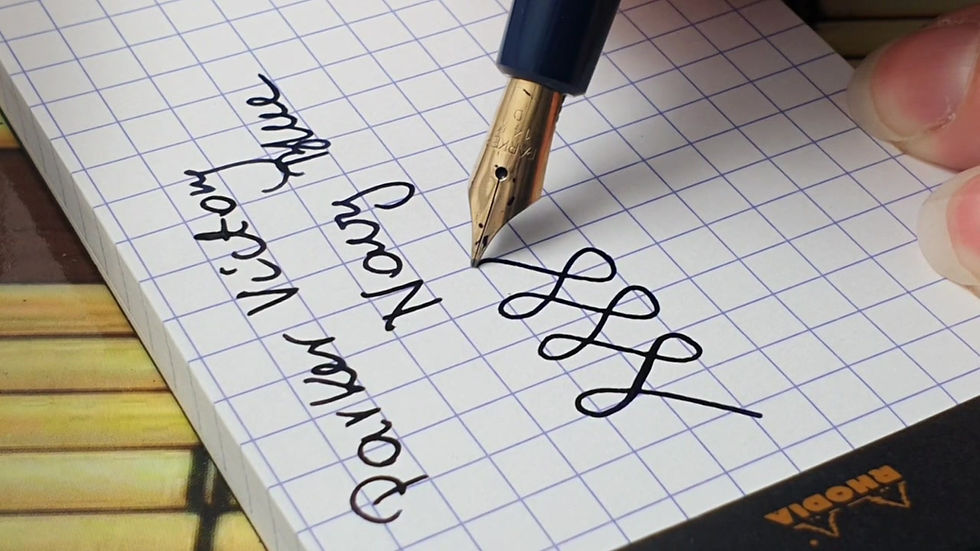 Parker Victory
Navy Blue
RHODIA